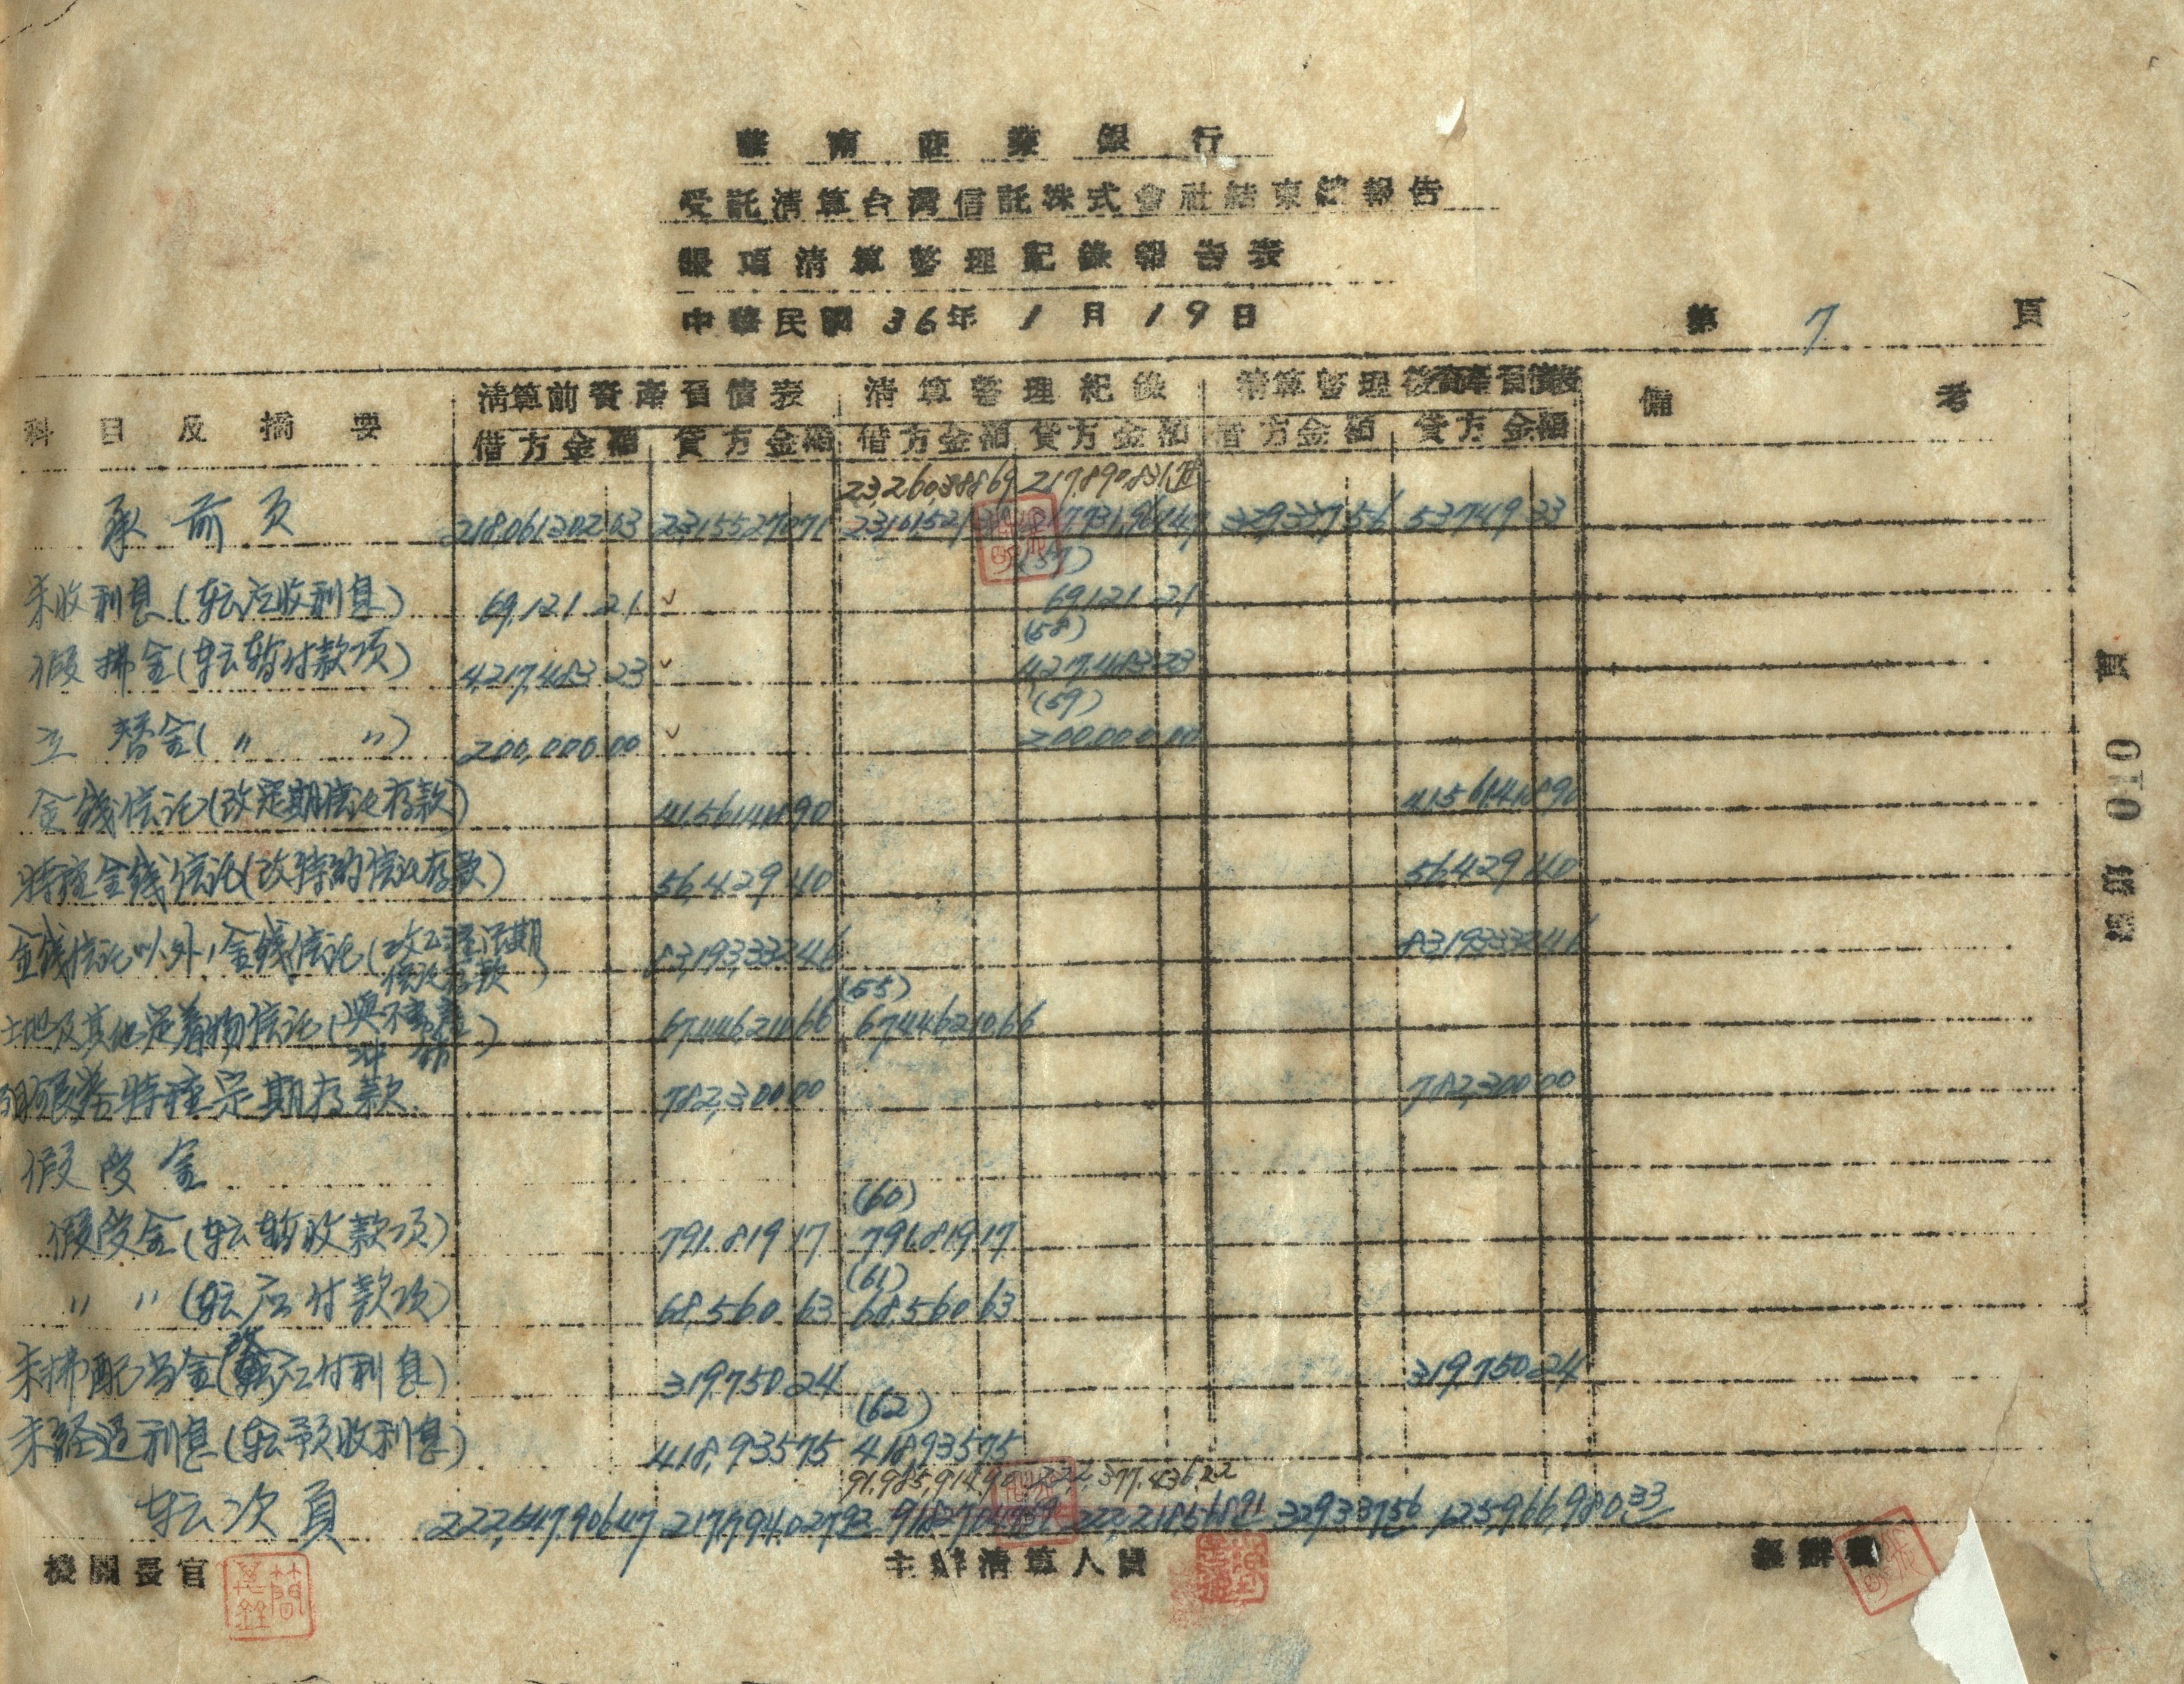 華南商業銀行
受託清算台灣信託株式會社結束總報告
賬項清算整理記錄報告表
中華民國 36年 1月 19日
第 7 頁
科目及摘要 清算前資產負債表 清算整理紀錄 清算整理後資產負債表 備考
借方金額 貸方金額 借方金額 貸方金額 借方金額 貸方金額
23,260,388.69 217,890,831.78
承前頁 218,061,302.03 23,155,270.71 329,337.56 53,749.33
(57)
未收利息(転应收利息) 69,121.21 69,121.21
(58)
假拂金(転暫付款項) 4,217,483.23 4,217,483.23
(59)
立替金(〃 〃) 200,000.00 200,000.00
金錢信託(改定期信託存款) 41,561,418.90 41,561,418.90
特種金錢信託(改特約信託存款) 56,429.40 56,429.40
金錢信託以外ノ金錢信託(改乙種活期信託存款) 83,193,332.46 83,193,332.46
(55)
土地及其他定着物信託(與不動產冲銷) 67,446,210.66 67,446,210.66
特種定期存款 782,300.00 782,300.00
假受金
(60)
假受金(転暫收款項) 791,819.17 791,819.17
(61)
〃 〃 (転应付款項) 68,560.63 68,560.63
未拂配当金(改应付利息) 319,750.24 319,750.24
(62)
未経過利息(転預收利息) 418,935.75 418,935.75
91,985,914.90 222,377,436.22
転次頁 222,547,906.47 217,794,027.92 222,218,568.91 329,337.56 125,966,980.33
機關長官 主辦清算人員 經辦員
簡
頁 010 第 號